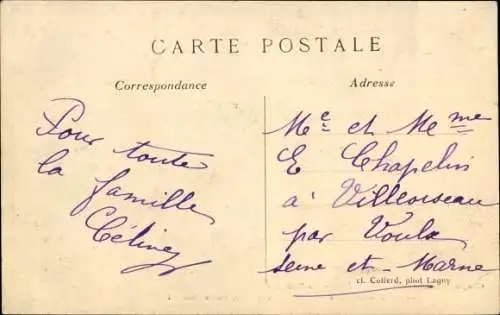 CARTE POSTALE
Correspondance
Adresse
Pour toute
la famille
Céline
Me et Mme
E Chapelin
à Villoiseau
par Voulx
Seine et Marne
cl. Collerd, phot Lagny